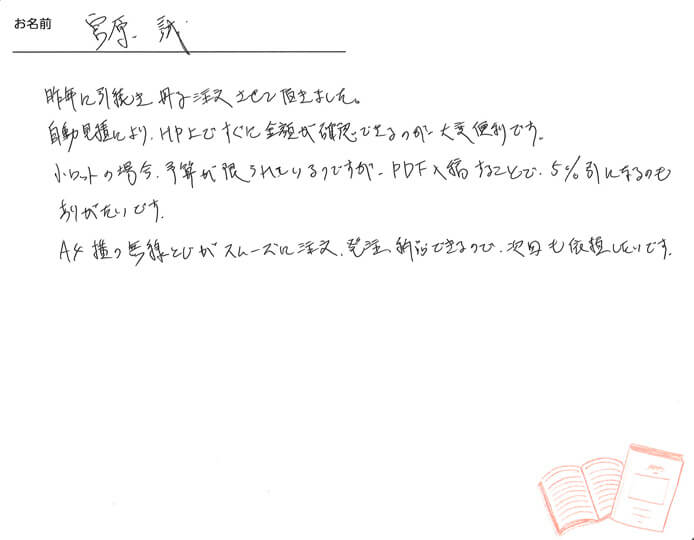 お名前 宮原 誠
昨年に引続き 冊子注文させて頂きました。
自動見積により、HP上ですぐに金額が確認できるのが大変便利です。
小ロットの場合、予算が限られているのですが、PDF入稿することで、5%引になるのも
ありがたいです。
A4横の無線とじがスムーズに注文、発注、納品できるので、次回も依頼したいです。